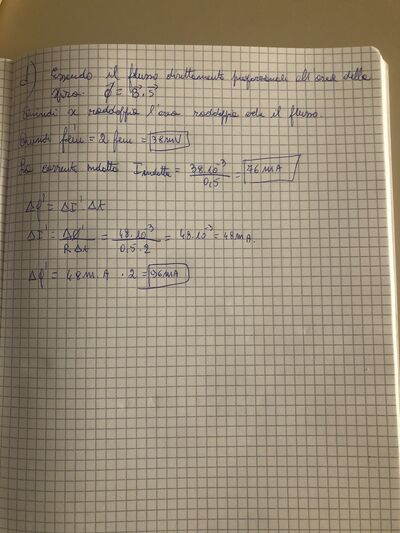 d) Essendo il flusso direttamente proporzionale all'area della
spira. Φ = B⃗ · S⃗
Quindi se raddoppia l'area raddoppia anche il flusso.
Quindi fem' = 2 fem = 38mV
La corrente indotta I indotta = 38·10⁻³ / 0,5 = 76 mA
ΔQ' = ΔI' · Δt
ΔI' = ΔΦ' / R Δt = 48·10⁻³ / 0,5·2 = 48·10⁻³ = 48mA.
ΔQ' = 48m.A · 2 = 96mA